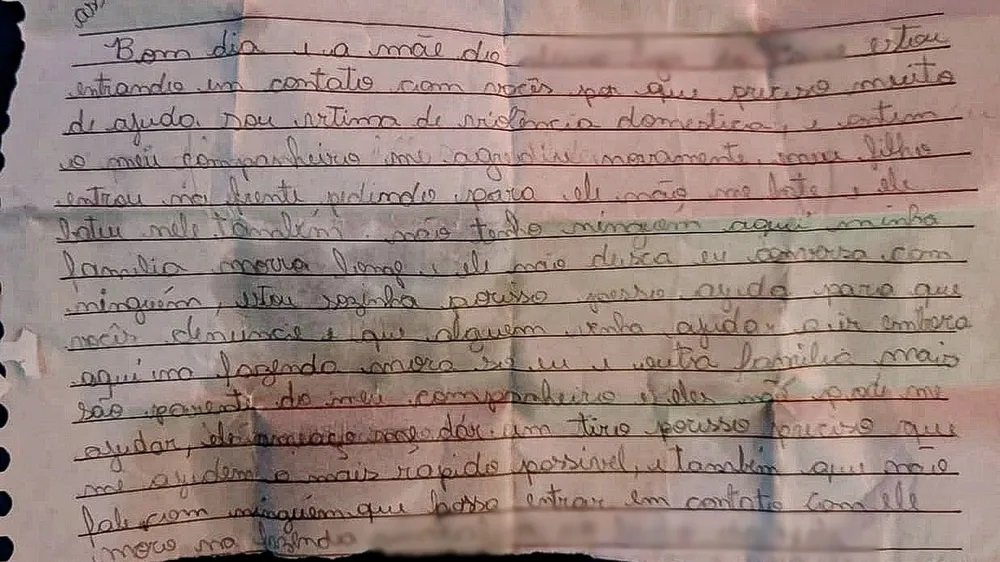 Bom dia e a mãe do estou
entrando em contato com vocês por que preciso muito
de ajuda. sou vitima de violência domestica, e ontem
o meu companheiro me agrediu novamente, meu filho
entrou na frente pedindo para ele não me bate e ele
bateu nele também. não tenho ninguém aqui minha
família morra longe e ele não deixa eu conversa com
ninguém, estou sozinha peço ajuda para que
vocês denuncie e que alguem venha ajuda a ir embora
aqui na fazenda mora só eu e outra família mais
são parente do meu companheiro e eles não pode me
ajudar, ele dár um tiro preciso que
me ajudem o mais rápido possível, e também que não
fale com ninguém que possa entrar em contato com ele
moro na fazenda